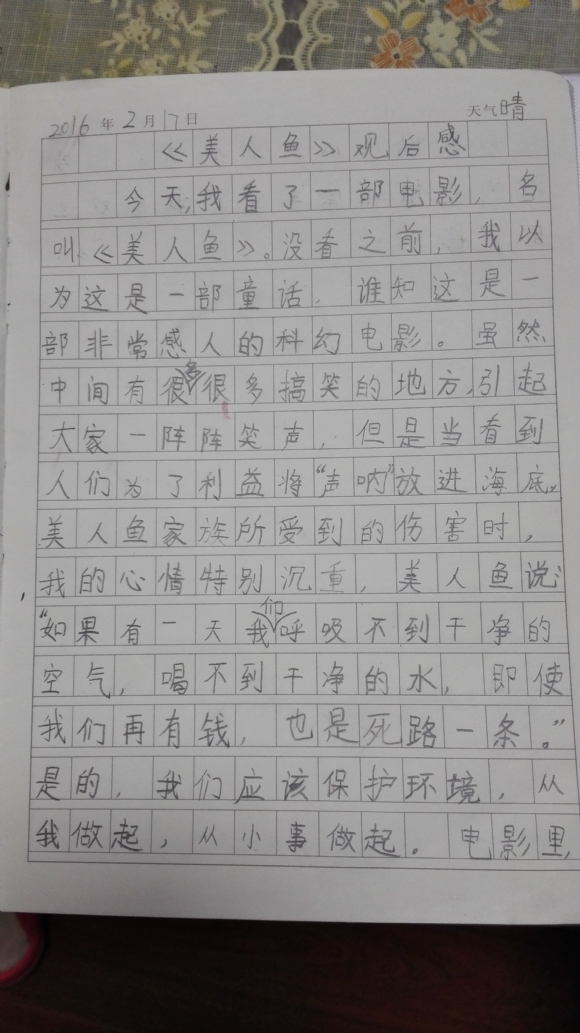 2016年2月17日 天气晴
《美人鱼》观后感
今天,我看了一部电影,名
叫《美人鱼》。没看之前,我以
为这是一部童话,谁知这是一
部非常感人的科幻电影。虽然
中间有很多很多搞笑的地方,引起
大家一阵阵笑声,但是当看到
人们为了利益将“声呐”放进海底,
美人鱼家族所受到的伤害时,
我的心情特别沉重,美人鱼说:
“如果有一天我们呼吸不到干净的
空气,喝不到干净的水,即使
我们再有钱,也是死路一条。”
是的,我们应该保护环境,从
我做起,从小事做起。电影里,